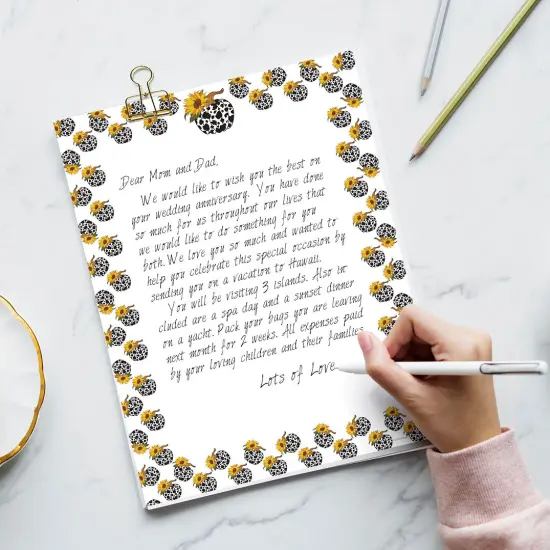 Dear Mom and Dad,
We would like to wish you the best on
your wedding anniversary. You have done
so much for us throughout our lives that
we would like to do something for you
both. We love you so much and wanted to
help you celebrate this special occasion by
sending you on a vacation to Hawaii.
You will be visiting 3 islands. Also in
cluded are a spa day and a sunset dinner
on a yacht. Pack your bags you are leaving
next month for 2 weeks. All expenses paid
by your loving children and their families
Lots of Love